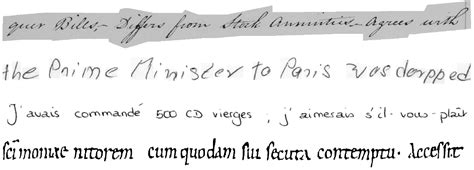 quer Bills,- Differs from Stock Annuities- Agrees with
the Prime Minister to Paris was dorpped
J'avais commandé 500 CD vierges, j'aimerais s'il-vous-plaît
scimoniae nitorem cum quodam sui secuta contemptu. Accessit